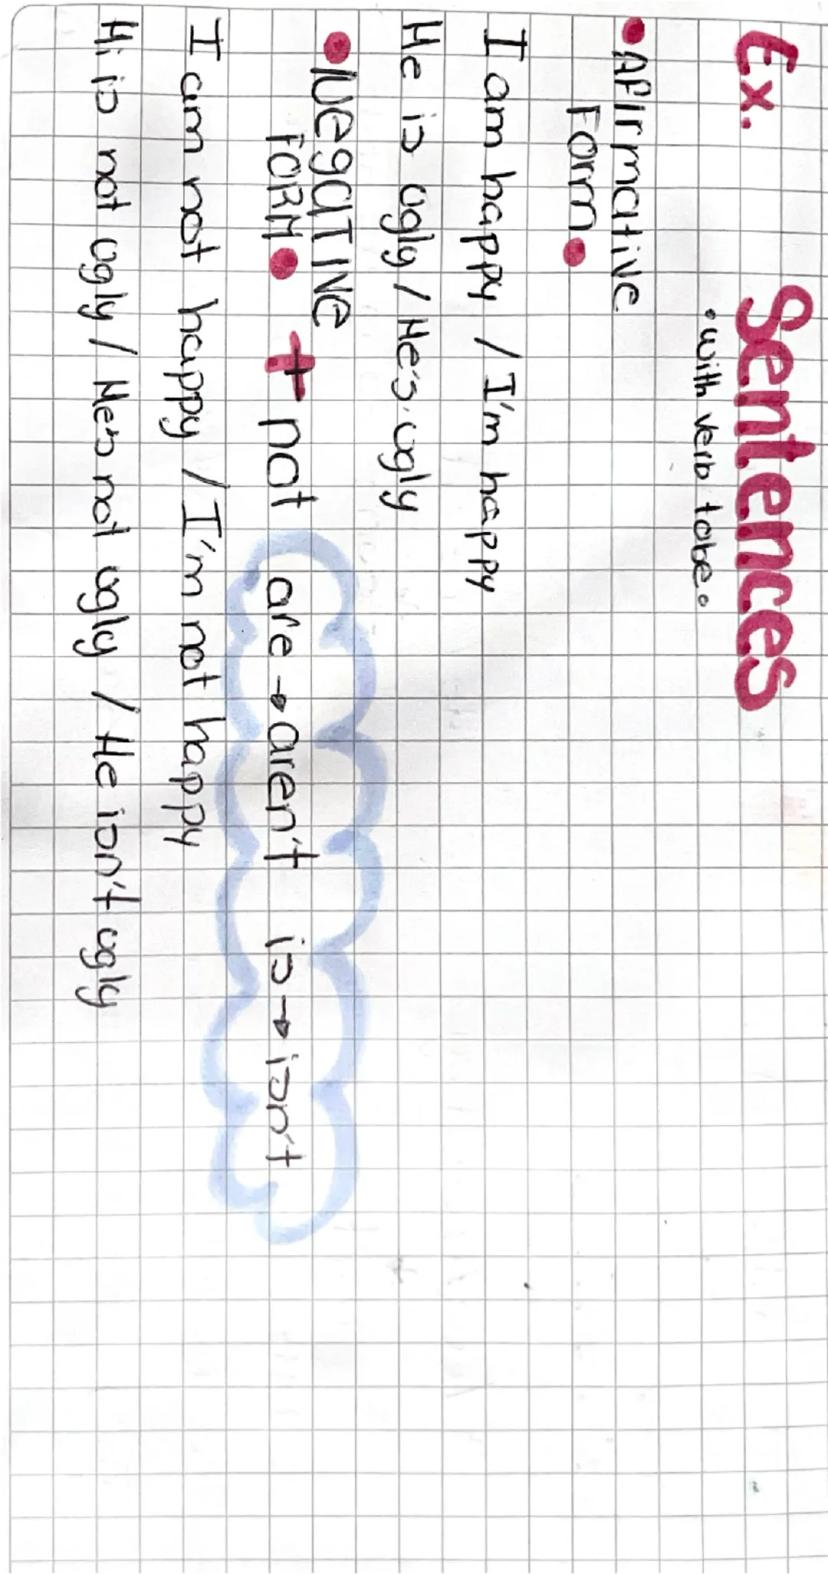 Ex. Sentences
•with verb to be•
•Afirmative
Form•
I am happy / I'm happy
He is ugly / He's ugly
•NEgATIVE
FORM• + not are→aren't is→isn't
I am not happy / I'm not happy
Hi is not ugly / He's not ugly / He isn't ugly